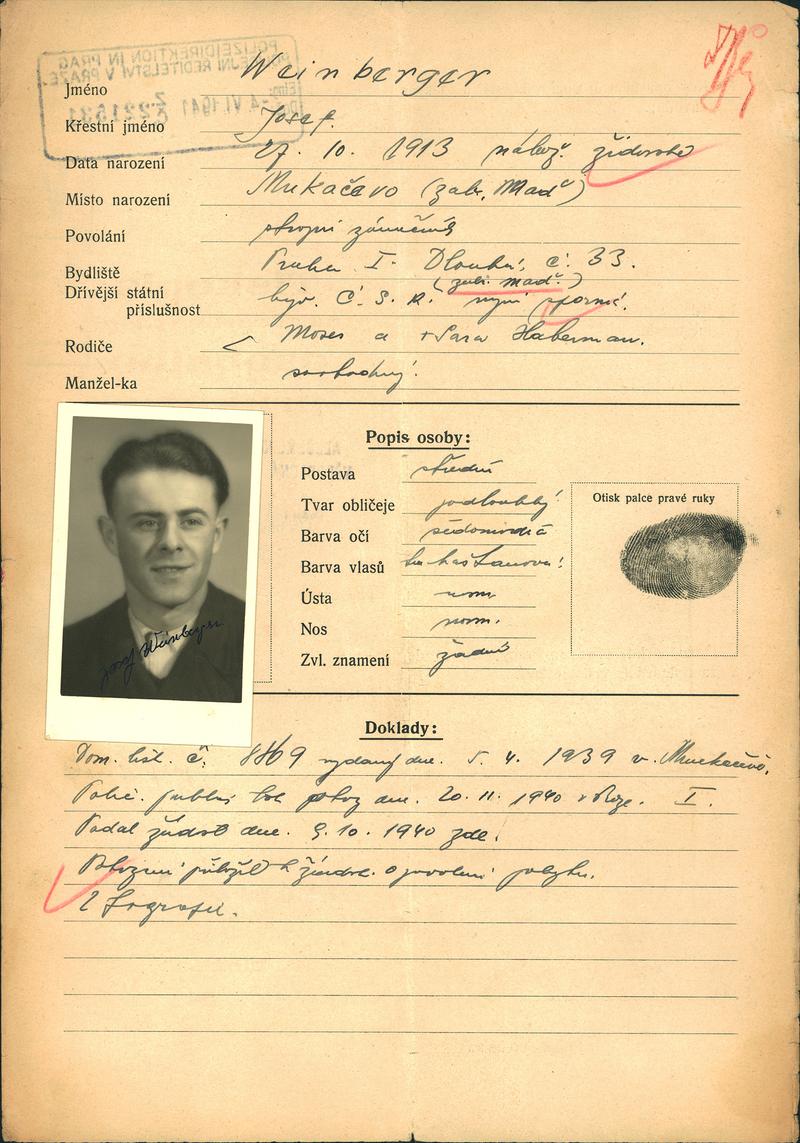 POLIZEIDIREKTION IN PRAG
POLICEJNÍ ŘEDITELSTVÍ V PRAZE.
4. VI. 1941
Jméno Weinberger
Křestní jméno Josef.
Data narození 27. 10. 1913 nábož. židovské
Místo narození Mukačevo (zabr. Maď)
Povolání strojní zámečník
Bydliště Praha I. Dlouhá, č. 33.
(zabr. maď.)
Dřívější státní
příslušnost býv. Č. S. R. nyní sporná.
Rodiče < Moses a +Sara Haberman.
Manžel-ka svobodný.
Josef Weinberger
Popis osoby:
Postava střední
Tvar obličeje podlouhlý
Barva očí šedomodrá
Barva vlasů kaštanová
Ústa norm
Nos norm.
Zvl. znamení žádné
Otisk palce pravé ruky
Doklady:
Dom. list. č. vydaný dne. 5. 4. 1939 v. Mukačevě.
dne. 20. 11. 1940 I.
Podal žádost dne. 9. 10. 1940 zde.
přiložil k žádosti o povolení pobytu.
2 fotografie.